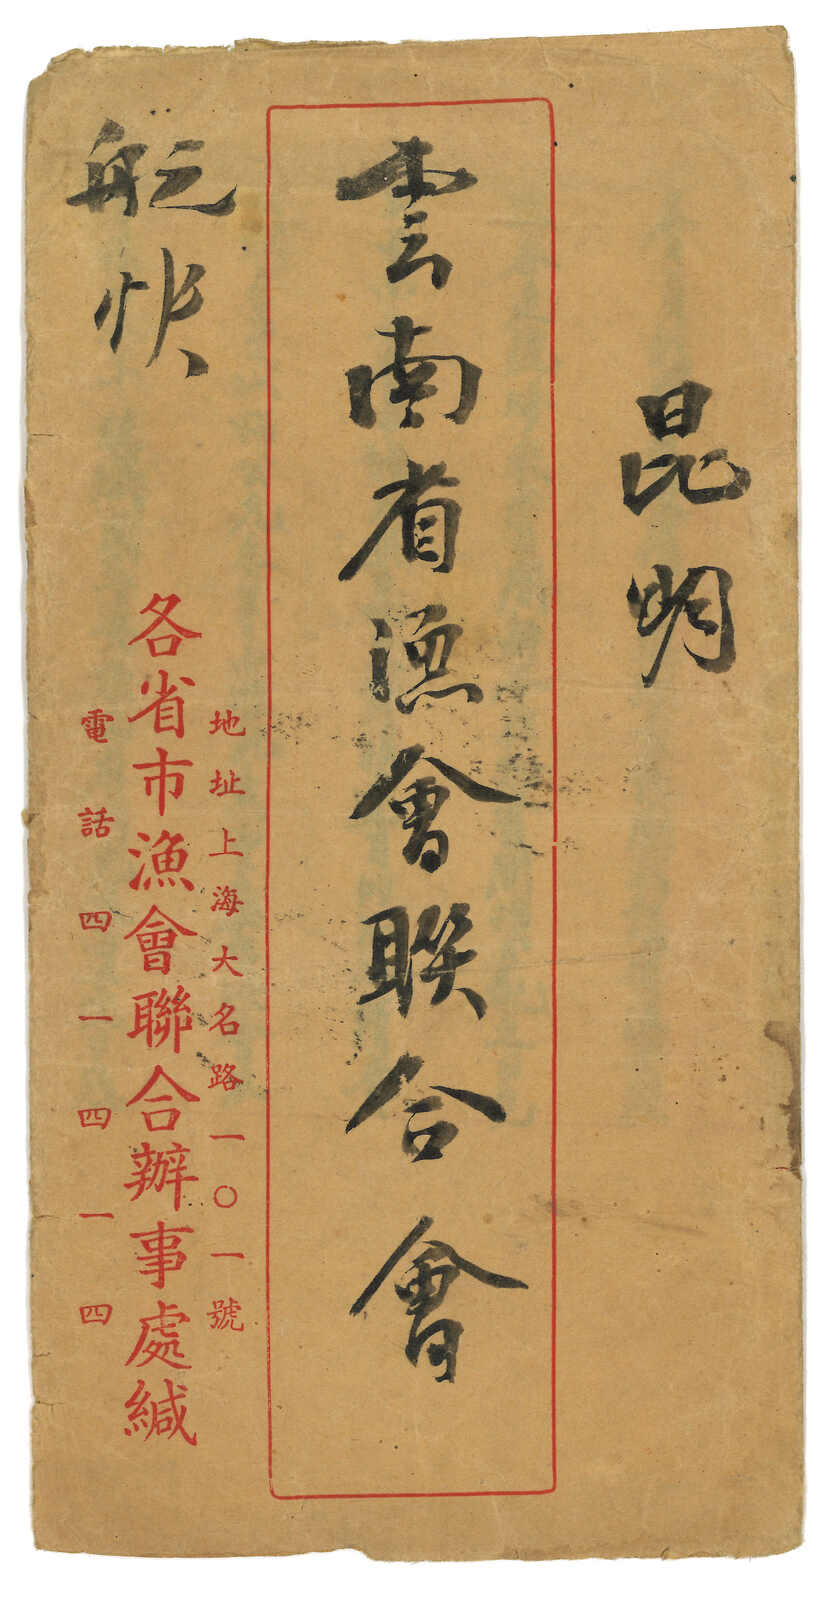 昆明
雲南省渔會聯合會
地址上海大名路一〇一號
各省市漁會聯合辦事處緘
電話四一四一四
航快